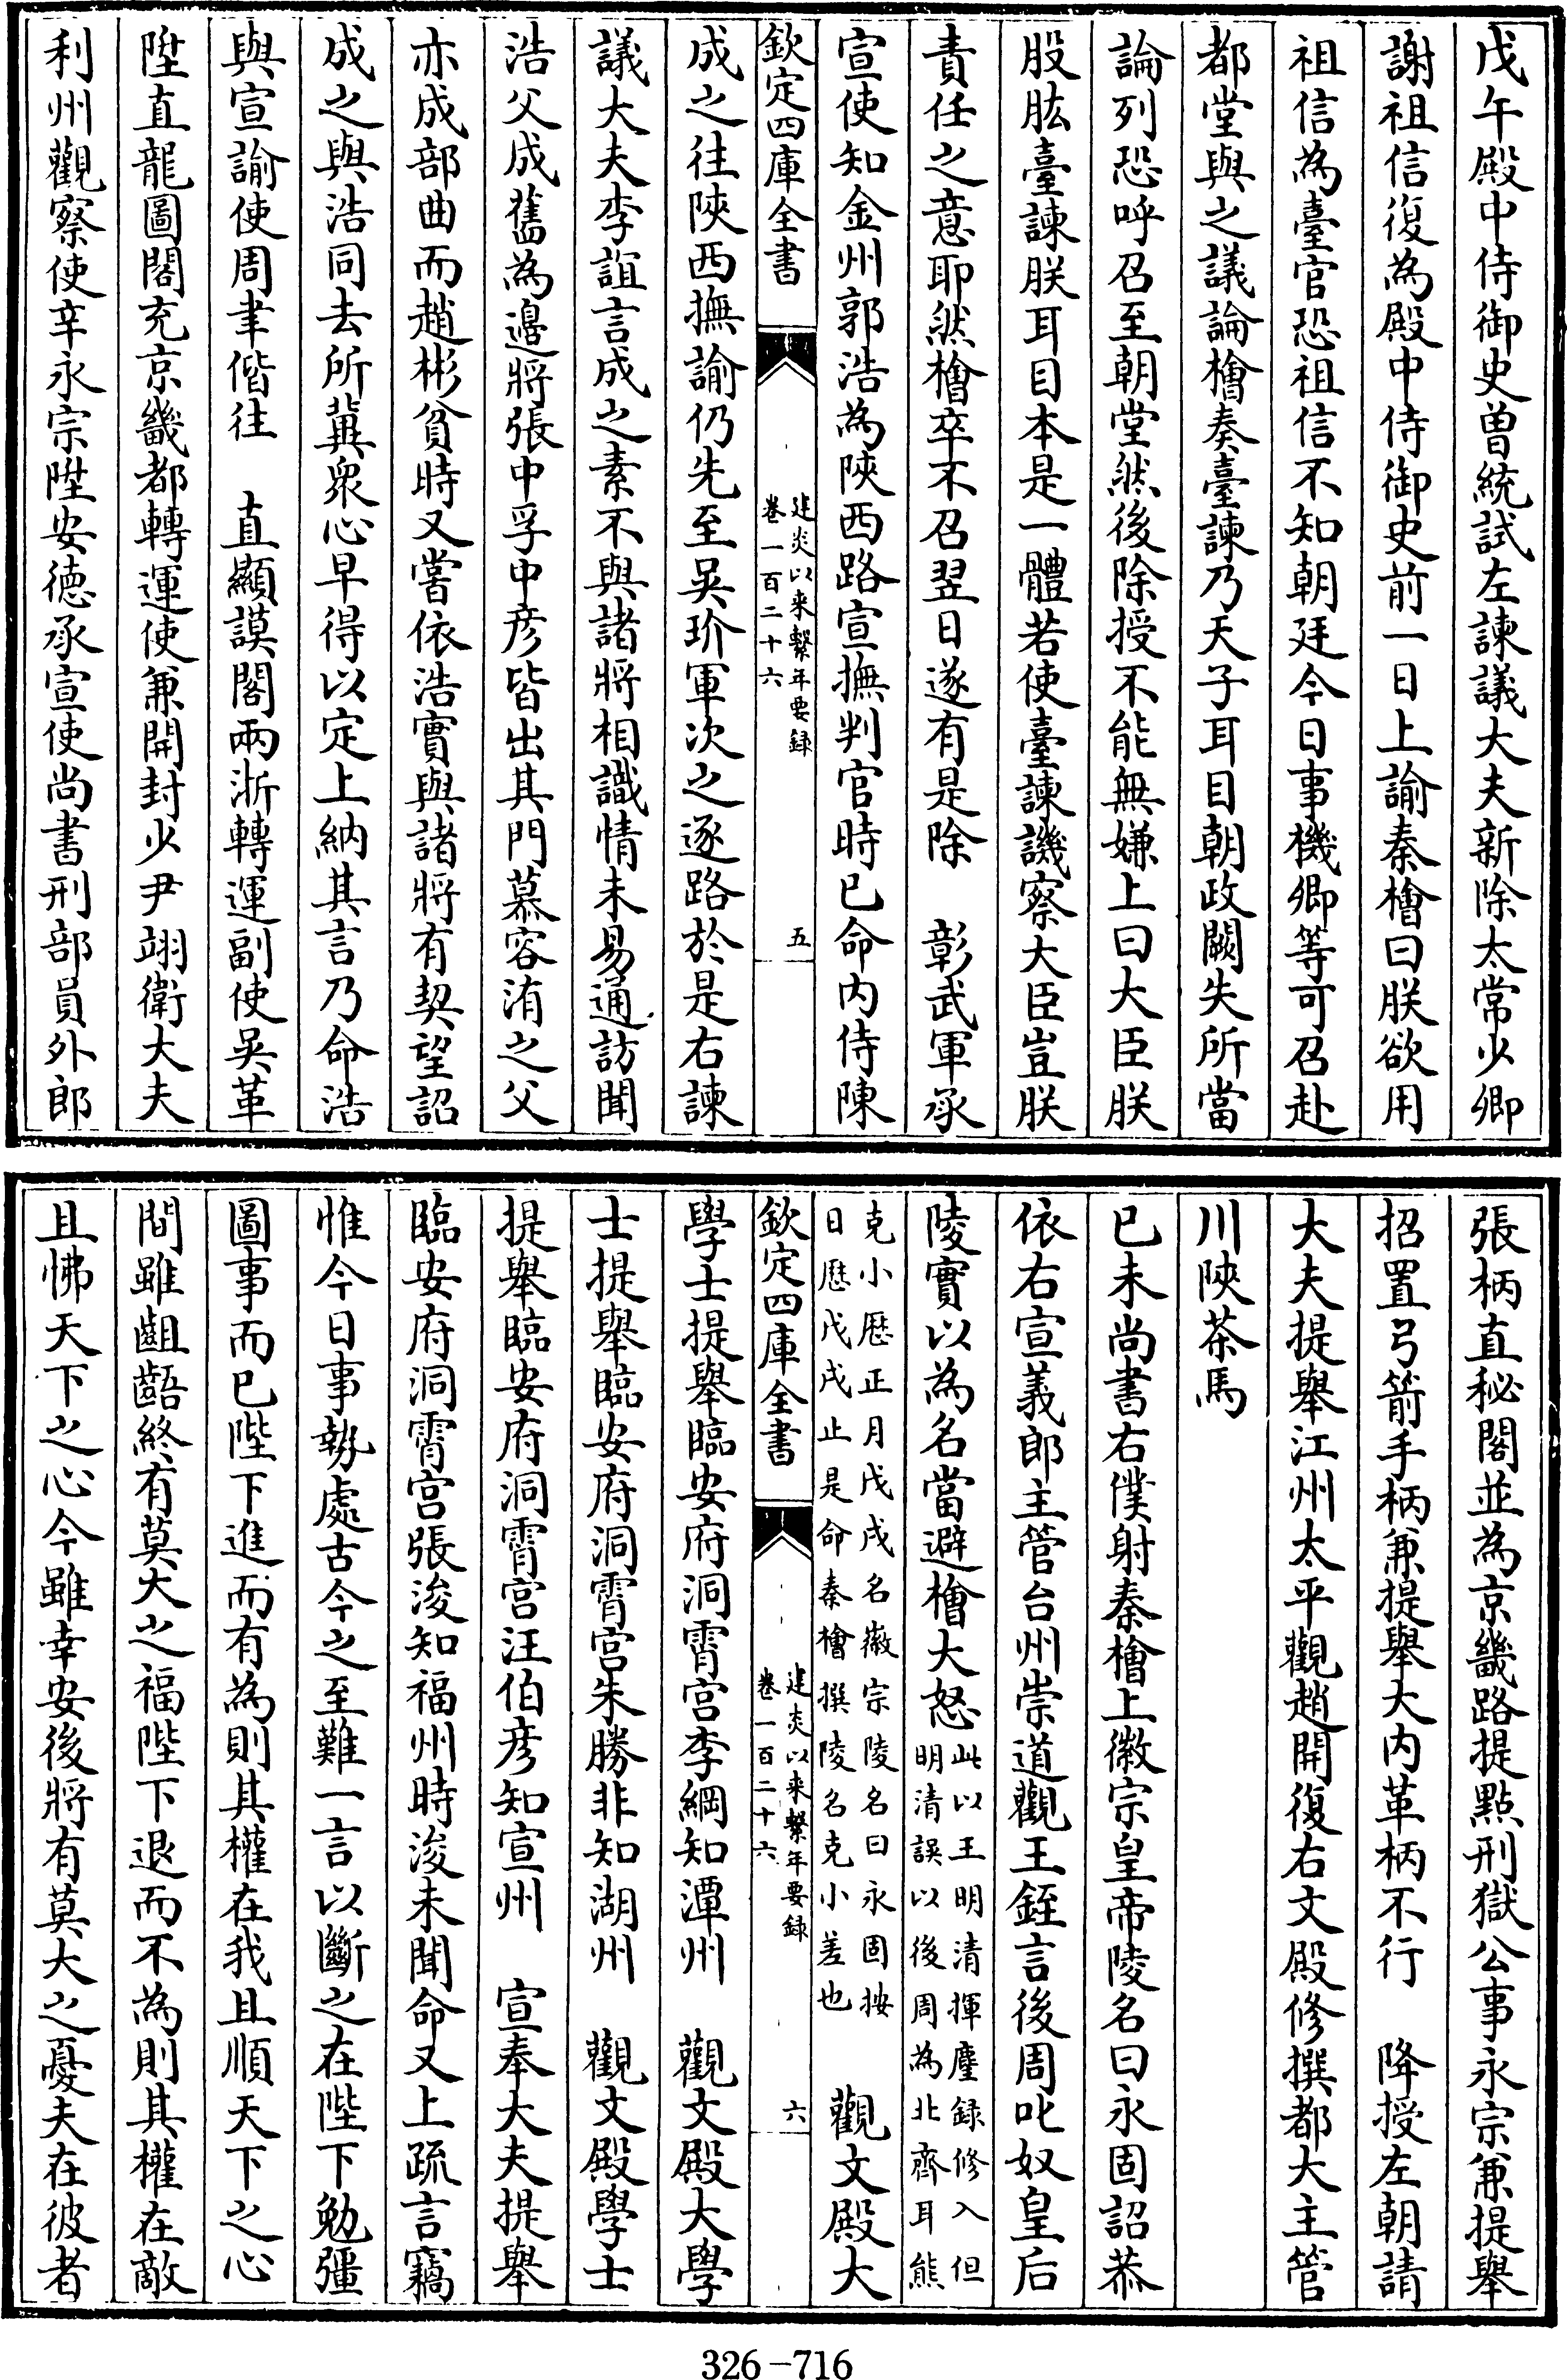 戊午殿中侍御史曾統試左諫議大夫新除太常少卿
謝祖信復為殿中侍御史前一日上諭秦檜曰朕欲用
祖信為臺官恐祖信不知朝廷今日事機卿等可召赴
都堂與之議論檜奏臺諫乃天子耳目朝政闕失所當
論列恐呼召至朝堂然後除授不能無嫌上曰大臣朕
股肱臺諫朕耳目本是一體若使臺諫譏察大臣豈朕
責任之意耶然檜卒不召翌日遂有是除　彰武軍承
宣使知金州郭浩為陜西路宣撫判官時已命内侍陳
欽定四庫全書
建炎以来繫年要録
卷一百二十六
五
成之往陜西撫諭仍先至吳玠軍次之逐路於是右諫
議大夫李誼言成之素不與諸將相識情未易通訪聞
浩父成舊為邊將張中孚中彦皆出其門慕容洧之父
亦成部曲而趙彬貧時又嘗依浩實與諸將有契望詔
成之與浩同去所冀衆心早得以定上納其言乃命浩
與宣諭使周聿偕往　直顯謨閣兩浙轉運副使吳革
陞直龍圖閣充京畿都轉運使兼開封少尹翊衛大夫
利州觀察使辛永宗陞安德承宣使尚書刑部員外郎
張柄直秘閣並為京畿路提點刑獄公事永宗兼提舉
招置弓箭手柄兼提舉大内革柄不行　降授左朝請
大夫提舉江州太平觀趙開復右文殿修撰都大主管
川陜茶馬
已未尚書右僕射秦檜上徽宗皇帝陵名曰永固詔恭
依右宣義郎主管台州崇道觀王銍言後周叱奴皇后
陵實以為名當避檜大怒此以王明清揮麈録修入但
明清誤以後周為北齊耳熊
克小歴正月戊戌名徽宗陵名曰永固按
日歴戊戌止是命秦檜撰陵名克小差也　觀文殿大
欽定四庫全書
建炎以来繫年要録
卷一百二十六
六
學士提舉臨安府洞霄宫李綱知潭州　觀文殿大學
士提舉臨安府洞霄宫朱勝非知湖州　觀文殿學士
提舉臨安府洞霄宫汪伯彦知宣州　宣奉大夫提舉
臨安府洞霄宫張浚知福州時浚未聞命又上疏言竊
惟今日事勢處古今之至難一言以斷之在陛下勉彊
圖事而已陛下進而有為則其權在我且順天下之心
間雖齟齬終有莫大之福陛下退而不為則其權在敵
且怫天下之心今雖幸安後將有莫大之憂夫在彼者
326-716